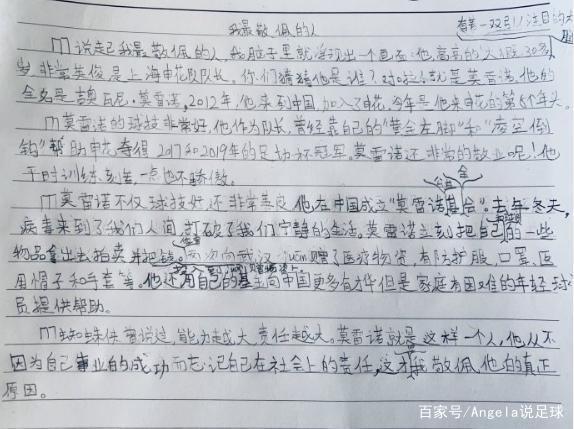 我最敬佩的人
有着一双引人注目的大
说起我最敬佩的人,我脑子里就浮现出一个画面:他,高高的个
岁,非常英俊,是上海申花队队长。你们猜猜他是谁?对啦!就是莫雷诺,他的
全名是吉奥瓦尼·莫雷诺,2012年,他来到中国加入了申花,今年是他来申花的第
莫雷诺的球技非常好,他作为队长,曾经靠自己的“黄金左脚”和“凌空倒
钩”帮助申花夺得2017和2019年的足协杯冠军。莫雷诺还非常的敬业呢!他
平时训练刻苦,一点也不骄傲。
莫雷诺不仅球技好,还非常善良,他在中国成立“莫雷诺公益基金会”。去年冬天,
病毒来到了我们人间,打破了我们宁静的生活。莫雷诺立刻把自己的一些
物品拿出去拍卖,并把钱
向武汉juān赠了医疗物资,有防护服、口罩、医
用帽子和手套等。他还用自己的基金向中国更多有才华但是家庭有困难的年轻球
员提供帮助。
蜘蛛侠曾说过,能力越大,责任越大。莫雷诺就是这样一个人,他从不
因为自己事业的成功而忘记自己在社会上的责任,这才我敬佩他的真正
原因。
百家号/Angela说足球